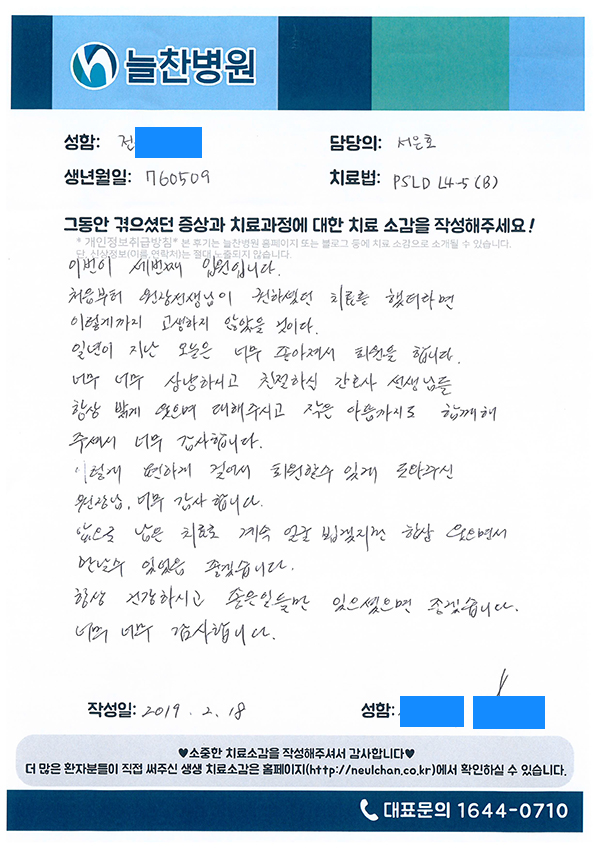 늘찬병원
성함: 전
담당의: 서은호
생년월일: 760509
치료법: PSLD L4-5 (B)
그동안 겪으셨던 증상과 치료과정에 대한 치료 소감을 작성해주세요!
* 개인정보취급방침* 본 후기는 늘찬병원 홈페이지 또는 블로그 등에 치료 소감으로 소개될 수 있습니다.
단, 신상정보(이름,연락처)는 절대 노출되지 않습니다.
이번이 세번째 입원입니다.
처음부터 원장선생님이 권하셨던 치료를 했더라면
이렇게까지 고생하지 않았을 것이다.
일년이 지난 오늘은 너무 좋아져서 퇴원을 합니다.
너무 너무 상냥하시고 친절하신 간호사 선생님들
항상 밝게 웃으며 대해주시고 작은 아픔까지도 함께해
주셔서 너무 감사합니다.
이렇게 편하게 걸어서 퇴원할수 있게 도와주신
원장님, 너무 감사합니다.
앞으로 남은 치료로 계속 얼굴 뵙겠지만 항상 웃으면서
만날수 있었음 좋겠습니다.
항상 건강하시고 좋은일들만 있으셨으면 좋겠습니다.
너무 너무 감사합니다.
작성일: 2019. 2. 18
성함:
♥소중한 치료소감을 작성해주셔서 감사합니다♥
더 많은 환자분들이 직접 써주신 생생 치료소감은 홈페이지(http://neulchan.co.kr)에서 확인하실 수 있습니다.
대표문의 1644-0710